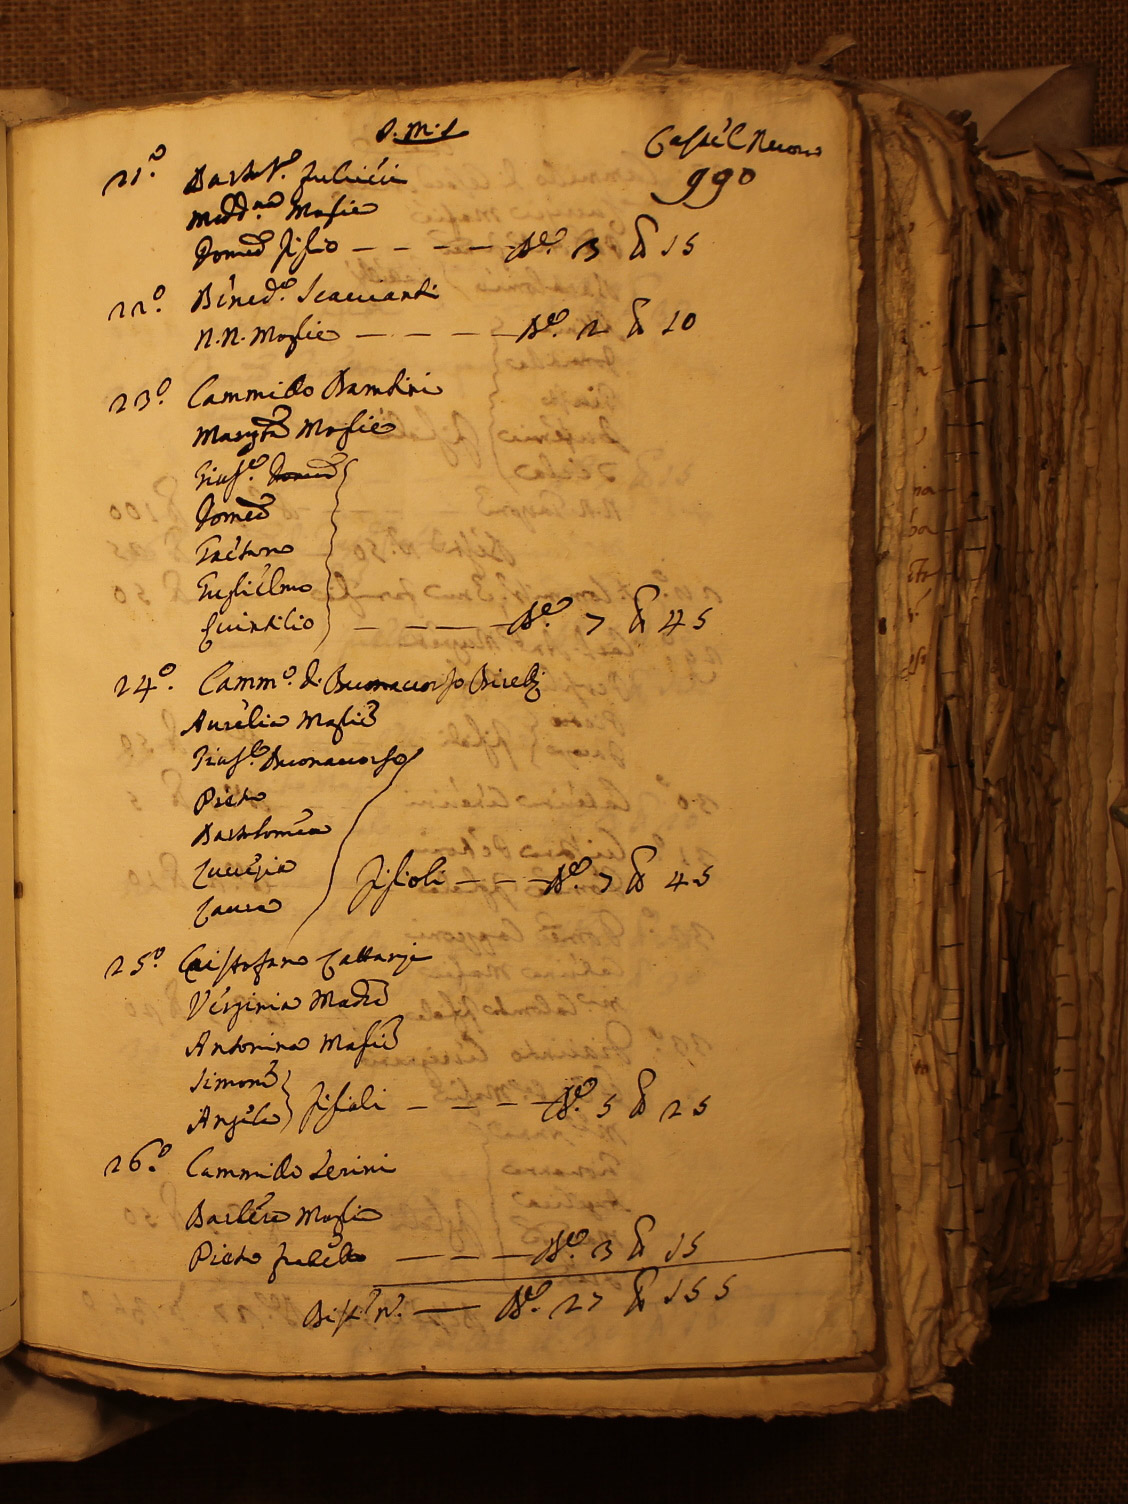 Castél Nuovo
990
21.º Bart.º
Madd.na Moglie
Domco figlio — — — — N.º 3 15
22.º Bened.º Scaccianti
N.N. Moglie — — — — N.º 2 10
23.º Cammillo Bambini
Margta Moglie
Gius.e Domco
Domco
Gaetano
Guglielmo
Quintilio — — — N.º 7 45
24.º Camm.º di Buonaccorso
Aurelia Moglie
Gius.e Buonaccorso
Pietro
Bartolomeo
Lucrezia
Laura figlioli — — — N.º 7 45
25.º Cristofano
Verginia Madre
Antonina Moglie
Simone
Angelo figlioli — — — — N.º 5 25
26.º Cammillo Lerini
Moglie
Pietro fratello — — — — N.º 3 15
— N.º 27 155